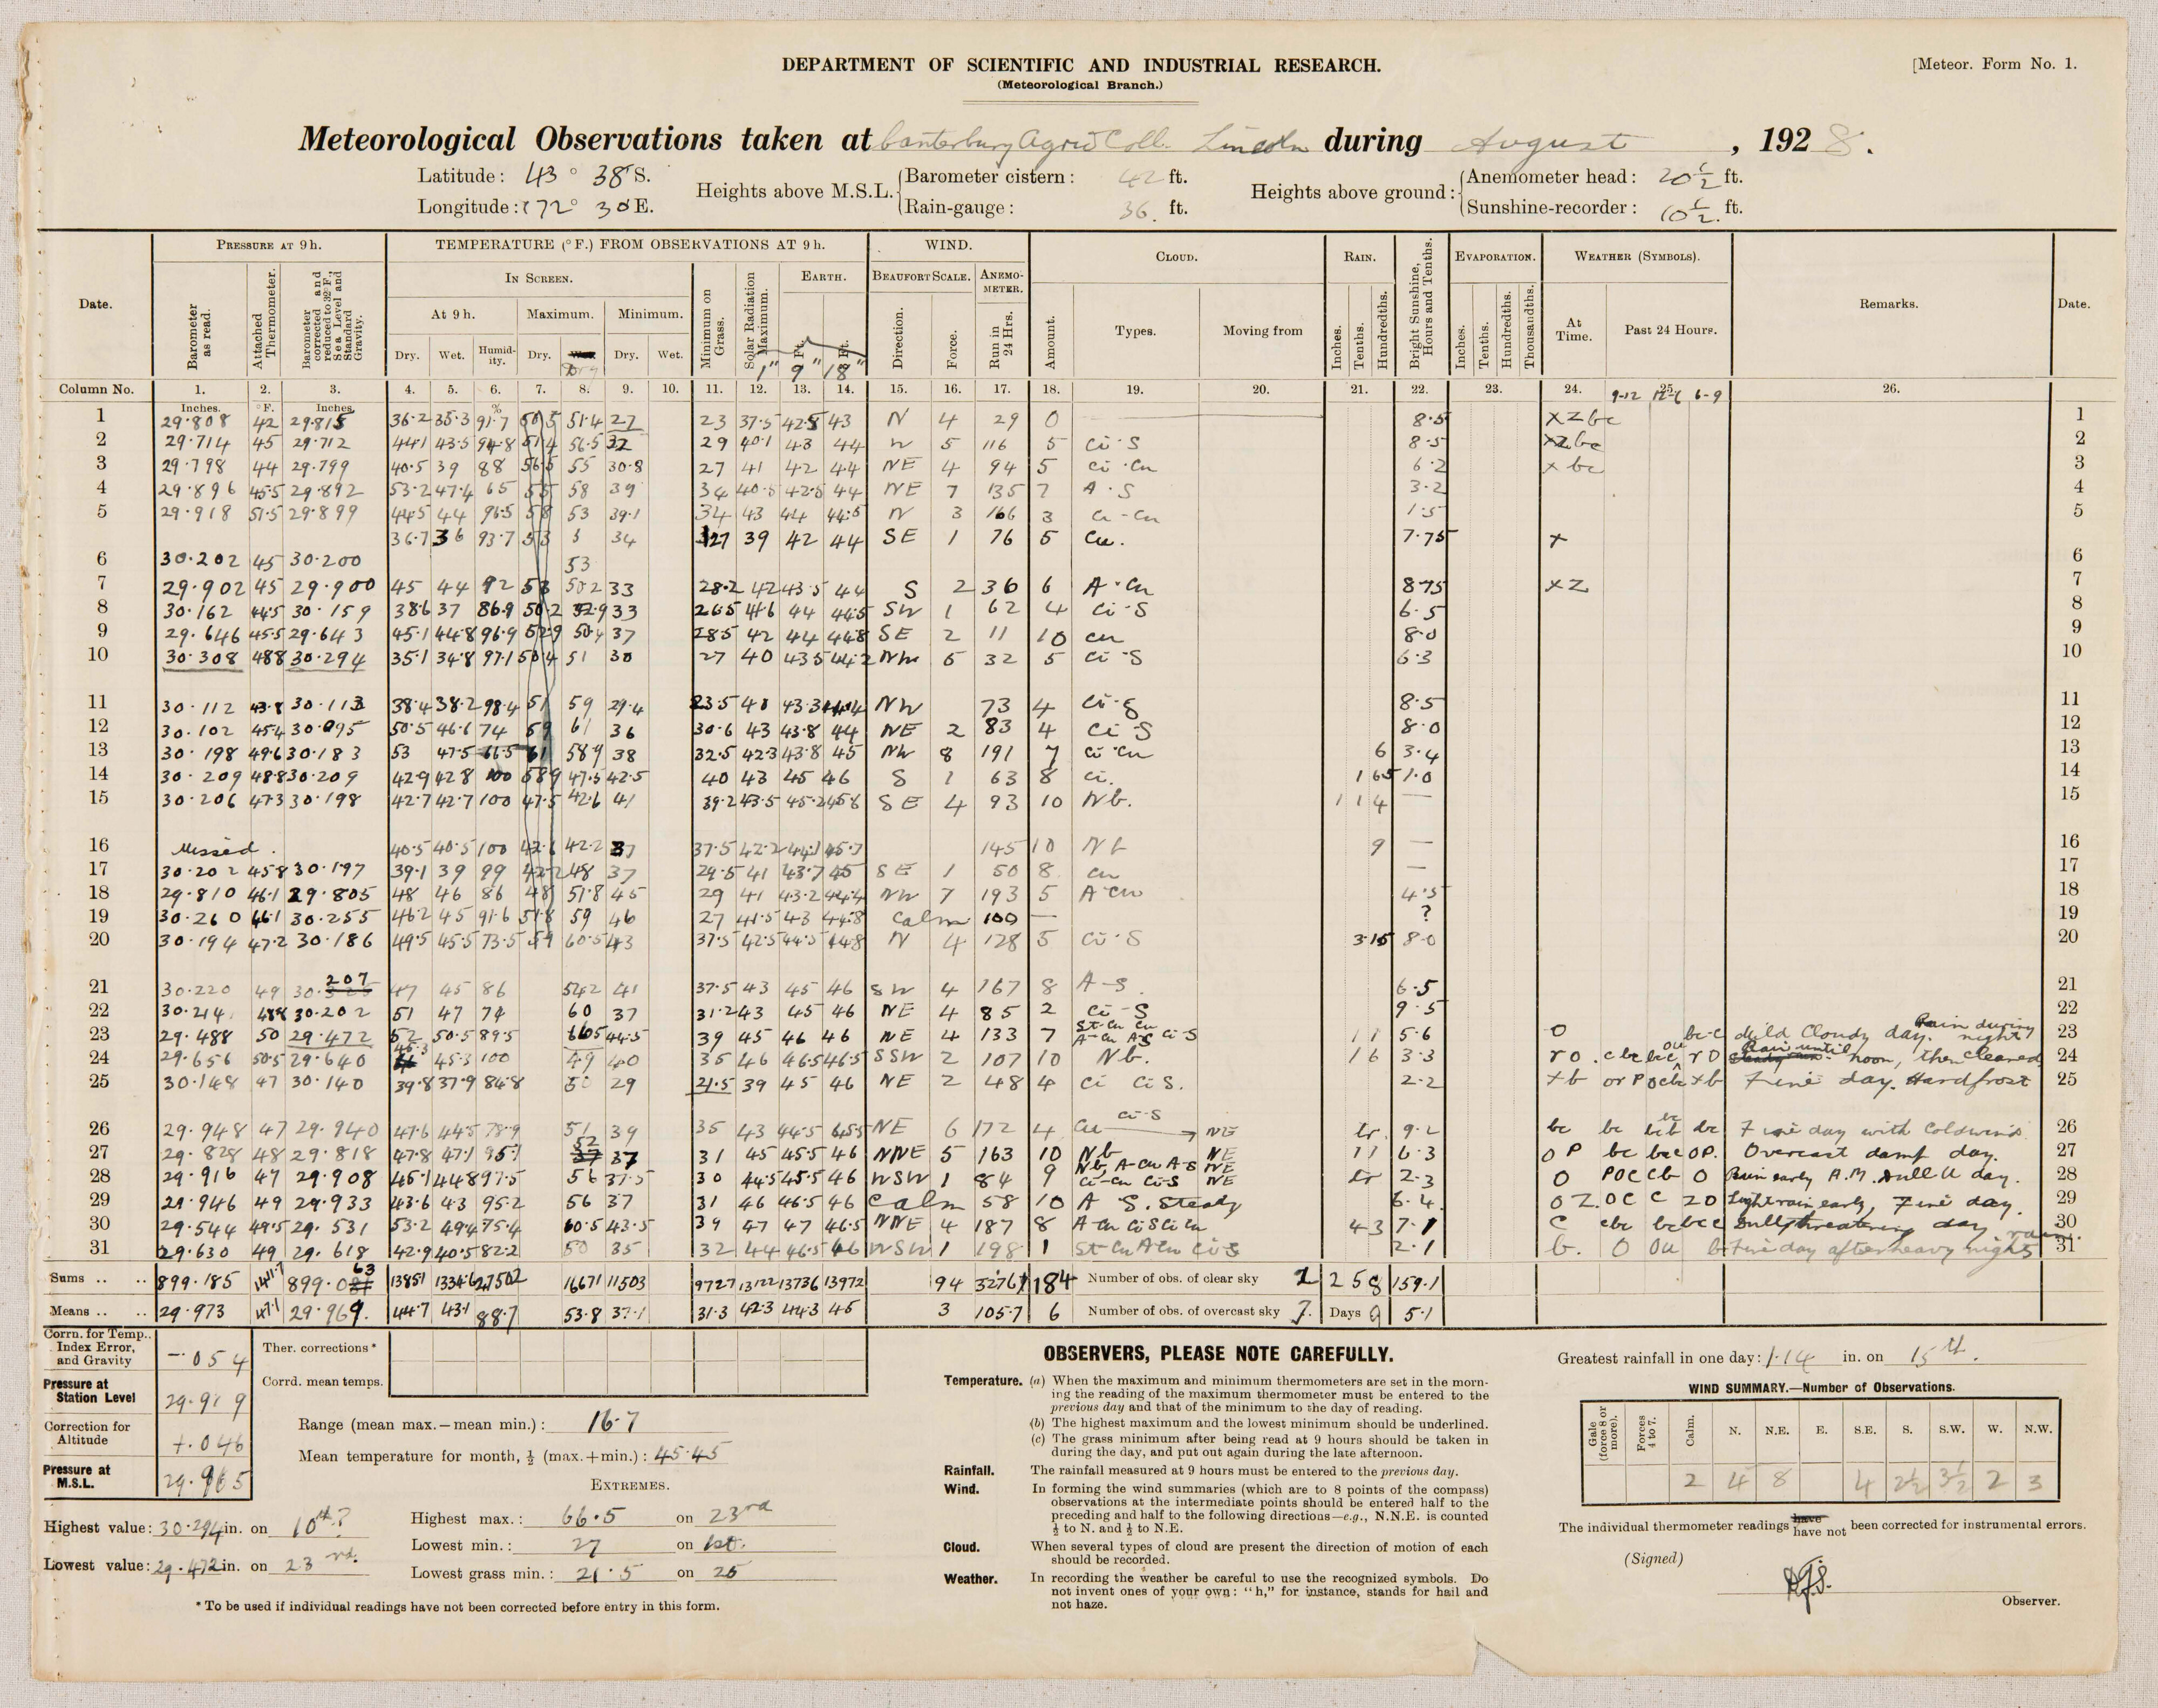 DEPARTMENT OF SCIENTIFIC AND INDUSTRIAL RESEARCH.
[Meteor. Form No. 1.
(Meteorological Branch.)
Meteorological Observations taken at Canterbury Agric Coll. Lincoln during August, 1928.
Latitude: 43° 38' S. Heights above M.S.L. Barometer cistern: 42 ft. Heights above ground: Anemometer head: 20½ ft.
Longitude: 172° 30 E. Rain-gauge: 36. ft. Sunshine-recorder: 10½ ft.
Date. PRESSURE AT 9 h. TEMPERATURE (°F.) FROM OBSERVATIONS AT 9 h. WIND. CLOUD. RAIN. Bright Sunshine, Hours and Tenths. EVAPORATION. WEATHER (SYMBOLS). Remarks. Date.
Barometer as read. Attached Thermometer. Barometer corrected and reduced to 32° F., Sea Level and Standard Gravity. IN SCREEN. Minimum on Grass. Solar Radiation Maximum. EARTH. BEAUFORT SCALE. ANEMOMETER.
At 9 h. Maximum. Minimum. Direction. Force. Run in 24 Hrs. Amount. Types. Moving from Inches. Tenths. Hundredths. Inches. Tenths. Hundredths. Thousandths. At Time. Past 24 Hours.
Dry. Wet. Humidity. Dry. Dry Dry. Wet. 1" 9" 18"
Column No. 1. 2. 3. 4. 5. 6. 7. 8. 9. 10. 11. 12. 13. 14. 15. 16. 17. 18. 19. 20. 21. 22. 23. 24. 25. 26.
Inches. °F. Inches. % 9-12 12-6 6-9
1 29.808 42 29.815 36.2 35.3 91.7 50.5 51.4 27 23 37.5 42.5 43 N 4 29 0 8.5 x z bc 1
2 29.714 45 29.712 44.1 43.5 94.8 51.4 56.5 32 29 40.1 43 44 W 5 116 5 Ci-S 8.5 x z bc 2
3 29.798 44 29.799 40.5 39 88 56.5 55 30.8 27 41 42 44 NE 4 94 5 Ci-Cu 6.2 x bc 3
4 29.896 45.5 29.892 53.2 47.4 65 55 58 39 34 40.5 42.5 44 NE 7 135 7 A-S 3.2 4
5 29.918 51.5 29.899 44.5 44 96.5 58 53 39.1 34 43 44 44.5 N 3 166 3 Ci-Cu 1.5 5
36.7 36 93.7 53 34 27 39 42 44 SE 1 76 5 Cu. 7.75 x
6 30.202 45 30.200 53 6
7 29.902 45 29.900 45 44 92 53 50.2 33 28.2 42 43.5 44 S 2 36 6 A-Cu 8.75 x z 7
8 30.162 44.5 30.159 38.6 37 86.9 50.2 52.9 33 26.5 41.6 44 44.5 SW 1 62 4 Ci-S 6.5 8
9 29.646 45.5 29.643 45.1 44.8 96.9 52.9 50.4 37 28.5 42 44 44.8 SE 2 11 10 Cu 8.0 9
10 30.308 48.8 30.294 35.1 34.8 97.1 50.4 51 30 27 40 43.5 44.2 NW 6 32 5 Ci-S 6.3 10
11 30.112 43.8 30.113 38.4 38.2 98.4 51 59 29.4 23.5 41 43.3 44.4 NW 73 4 Ci-S 8.5 11
12 30.102 45.4 30.095 50.5 46.6 74 59 61 36 30.6 43 43.8 44 NE 2 83 4 Ci-S 8.0 12
13 30.198 49.6 30.183 53 47.5 66.5 61 58.9 38 32.5 42.3 43.8 45 NW 8 191 7 Ci-Cu 6 3.4 13
14 30.209 48.8 30.209 42.9 42.8 100 58.9 47.5 42.5 40 43 45 46 S 1 63 8 Ci. 1 65 1.0 14
15 30.206 47.3 30.198 42.7 42.7 100 47.5 42.6 41 39.2 43.5 45.2 45.8 SE 4 93 10 Nb. 1 1 4 — 15
16 Missed. 40.5 40.5 100 42.6 42.2 37 37.5 42.2 44.1 45.7 145 10 Nb 9 — 16
17 30.202 45.8 30.197 39.1 39 99 42.2 48 37 29.5 41 43.7 45 SE 1 50 8 Cu — 17
18 29.810 46.1 29.805 48 46 86 48 51.8 45 29 41 43.2 44.4 NW 7 193 5 A-Cu 4.5 18
19 30.260 46.1 30.255 46.2 45 91.6 51.8 59 46 27 41.5 43 44.8 Calm 100 — ? 19
20 30.194 47.2 30.186 49.5 45.5 73.5 59 60.5 43 37.5 42.5 44.5 44.8 N 4 128 5 Ci-S 3 15 8.0 20
21 30.220 49 30.207 47 45 86 54.2 41 37.5 43 45 46 SW 4 167 8 A-S 6.5 21
22 30.214 48.8 30.202 51 47 74 60 37 31.2 43 45 46 NE 4 85 2 Ci-S 9.5 22
23 29.488 50 29.472 52 50.5 89.5 66.5 44.5 39 45 46 46 NE 4 133 7 St-Cu Cu A-Cu A-S Ci-S 1 1 5.6 o bc-c Mild Cloudy day. Rain during night 23
24 29.656 50.5 29.640 45.3 45.3 100 49 40 35 46 46.5 46.5 SSW 2 107 10 Nb. 1 6 3.3 r o. Rain until noon, then cleared 24
25 30.148 47 30.140 39.8 37.9 84.8 50 29 21.5 39 45 46 NE 2 48 4 Ci Ci S. 2.2 x b Fine day. Hard frost 25
26 29.948 47 29.940 47.6 44.5 78.9 51 39 35 43 44.5 45.5 NE 6 172 4 Cu Ci-S NE tr. 9.2 bc Fine day with Cold winds 26
27 29.828 48 29.818 47.8 47.1 95.1 52 37 31 45 45.5 46 NNE 5 163 10 Nb NE 1 1 6.3 o P bc bcc OP. Overcast damp day. 27
28 29.916 47 29.908 45.1 44.8 97.5 56 37.5 30 44.5 45.5 46 WSW 1 84 9 Nb, A-Cu A-S Ci-Cu Ci-S NE NE tr 2.3 O POCCb O Rain early A.M. dull day. 28
29 29.946 49 29.933 43.6 43 95.2 56 37 31 46 46.5 46 Calm 58 10 A S. Steady 6.4 O Z. O C C Z O Light rain early, Fine day. 29
30 29.544 49.5 29.531 53.2 49.4 75.4 60.5 43.5 39 47 47 46.5 NNE 4 187 8 A-Cu Ci S Ci Cu 4 3 7.1 C cbc bcbcc Dull threatening day 30
31 29.630 49 29.618 42.9 40.5 82.2 50 35 32 44 46.5 46 WSW 1 198 1 St-Cu A Cu Ci-S 2.1 b. O Ou b Fine day after heavy night rain. 31
Sums .. .. 899.185 1411.7 899.063 1385.1 1334.6 2750.2 1667.1 1150.3 972.7 1312.2 1373.6 1397.2 94 3276 184 Number of obs. of clear sky 1 2 5 8 159.1
Means .. .. 29.973 47.1 29.969. 44.7 43.1 88.7 53.8 37.1 31.3 42.3 44.3 45 3 105.7 6 Number of obs. of overcast sky 7. Days 9 5.1
Corrn. for Temp., Index Error, and Gravity -.054 Ther. corrections*
Pressure at Station Level 29.919 Corrd. mean temps.
Correction for Altitude +.046 Range (mean max.—mean min.): 16.7
Pressure at M.S.L. 29.965 Mean temperature for month, ½ (max.+min.): 45.45
EXTREMES.
Highest value: 30.294 in. on 10th? Highest max.: 66.5 on 23rd
Lowest min.: 27 on 1st.
Lowest value: 29.472 in. on 23rd. Lowest grass min.: 21.5 on 25
* To be used if individual readings have not been corrected before entry in this form.
OBSERVERS, PLEASE NOTE CAREFULLY.
Temperature. (a) When the maximum and minimum thermometers are set in the morn-
ing the reading of the maximum thermometer must be entered to the
previous day and that of the minimum to the day of reading.
(b) The highest maximum and the lowest minimum should be underlined.
(c) The grass minimum after being read at 9 hours should be taken in
during the day, and put out again during the late afternoon.
Rainfall. The rainfall measured at 9 hours must be entered to the previous day.
Wind. In forming the wind summaries (which are to 8 points of the compass)
observations at the intermediate points should be entered half to the
preceding and half to the following directions—e.g., N.N.E. is counted
½ to N. and ½ to N.E.
Cloud. When several types of cloud are present the direction of motion of each
should be recorded.
Weather. In recording the weather be careful to use the recognized symbols. Do
not invent ones of your own: "h," for instance, stands for hail and
not haze.
Greatest rainfall in one day: 1.14 in. on 15th.
WIND SUMMARY.—Number of Observations.
Gale (force 8 or more). Forces 4 to 7. Calm. N. N.E. E. S.E. S. S.W. W. N.W.
2 4 8 4 2½ 3½ 2 3
The individual thermometer readings have have not been corrected for instrumental errors.
(Signed)
Observer.